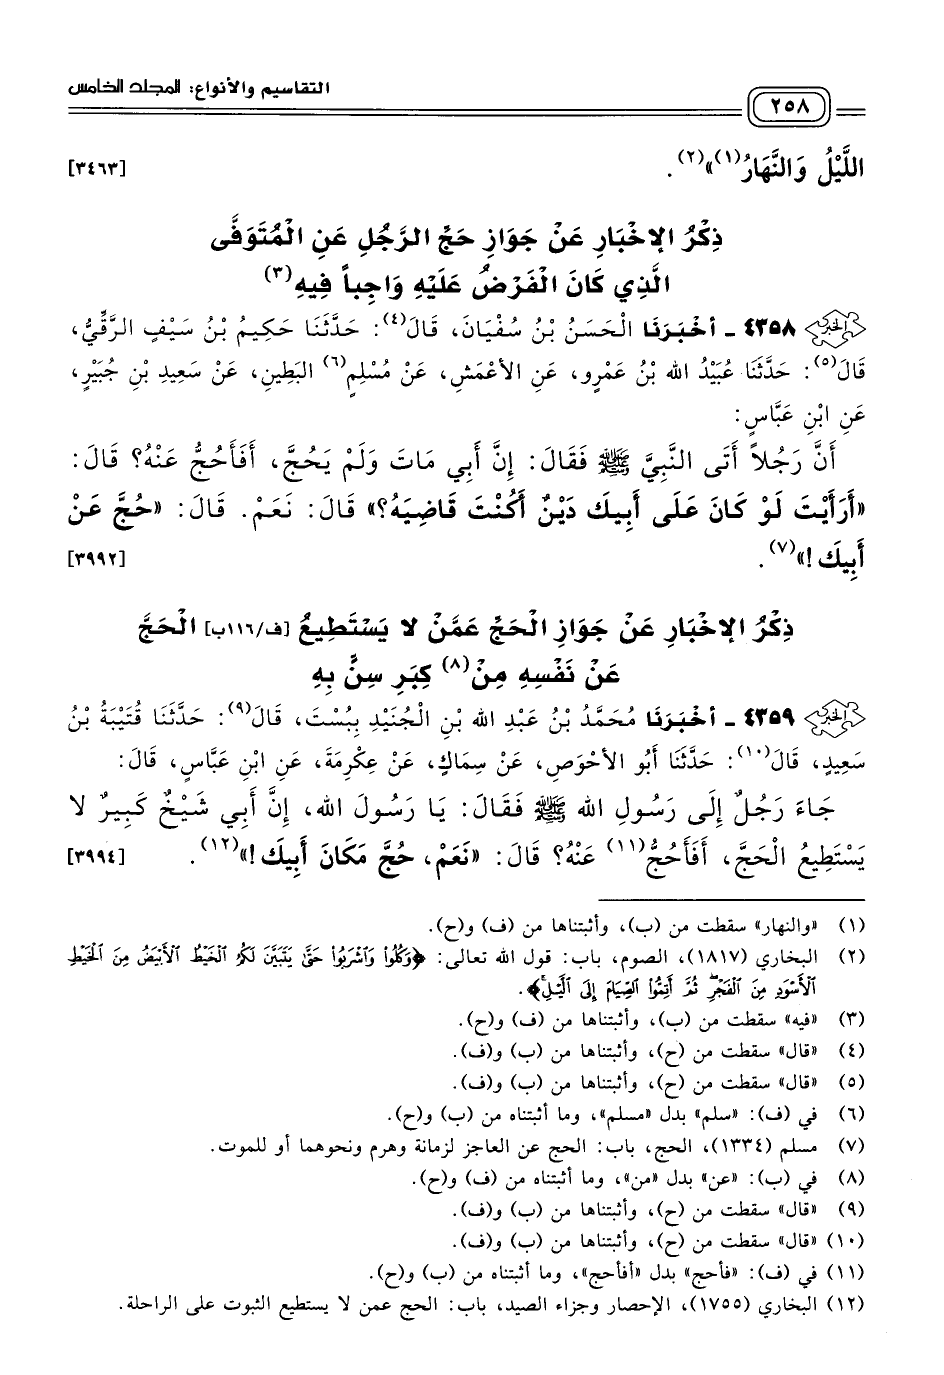 التقاسيم والأنواع: المجلد الخامس
٢٥٨
اللَّيْلُ وَالنَّهَارُ(١)»(٢). [٣٤٦٣]
ذِكْرُ الإخْبَارِ عَنْ جَوَازِ حَجِّ الرَّجُلِ عَنِ الْمُتَوَفَّى
الَّذِي كَانَ الْفَرْضُ عَلَيْهِ وَاجِباً فِيهِ(٣)
٤٣٥٨ - أَخْبَرَنَا الْحَسَنُ بْنُ سُفْيَانَ، قَالَ(٤): حَدَّثَنَا حَكِيمُ بْنُ سَيْفٍ الرَّقِّيُّ،
قَالَ(٥): حَدَّثَنَا عُبَيْدُ الله بْنُ عَمْرٍو، عَنِ الأعْمَشِ، عَنْ مُسْلِمٍ(٦) البَطِينِ، عَنْ سَعِيدِ بْنِ جُبَيْرٍ،
عَنِ ابْنِ عَبَّاسٍ:
أَنَّ رَجُلاً أَتَى النَّبِيَّ ﷺ فَقَالَ: إِنَّ أَبِي مَاتَ وَلَمْ يَحُجَّ، أَفَأَحُجُّ عَنْهُ؟ قَالَ:
«أَرَأَيْتَ لَوْ كَانَ عَلَى أَبِيكَ دَيْنٌ أَكُنْتَ قَاضِيَهُ؟» قَالَ: نَعَمْ. قَالَ: «حُجَّ عَنْ
أَبِيكَ!»(٧). [٣٩٩٢]
ذِكْرُ الإخْبَارِ عَنْ جَوَازِ الْحَجِّ عَمَّنْ لا يَسْتَطِيعُ [ف/١١٦ب] الْحَجَّ
عَنْ نَفْسِهِ مِنْ(٨) كِبَرِ سِنٍّ بِهِ
٤٣٥٩ - أَخْبَرَنَا مُحَمَّدُ بْنُ عَبْدِ الله بْنِ الْجُنَيْدِ بِبُسْتَ، قَالَ(٩): حَدَّثَنَا قُتَيْبَةُ بْنُ
سَعِيدٍ، قَالَ(١٠): حَدَّثَنَا أَبُو الأحْوَصِ، عَنْ سِمَاكٍ، عَنْ عِكْرِمَةَ، عَنِ ابْنِ عَبَّاسٍ، قَالَ:
جَاءَ رَجُلٌ إِلَى رَسُولِ الله ﷺ فَقَالَ: يَا رَسُولَ الله، إِنَّ أَبِي شَيْخٌ كَبِيرٌ لا
يَسْتَطِيعُ الْحَجَّ، أَفَأَحُجُّ(١١) عَنْهُ؟ قَالَ: «نَعَمْ، حُجَّ مَكَانَ أَبِيكَ!»(١٢). [٣٩٩٤]
(١) «والنهار» سقطت من (ب)، وأثبتناها من (ف) و(ح).
(٢) البخاري (١٨١٧)، الصوم، باب: قول الله تعالى: ﴿وَكُلُوا وَاشْرَبُوا حَتَّى يَتَبَيَّنَ لَكُمُ الْخَيْطُ الْأَبْيَضُ مِنَ الْخَيْطِ
الْأَسْوَدِ مِنَ الْفَجْرِ ثُمَّ أَتِمُّوا الصِّيَامَ إِلَى اللَّيْلِ﴾.
(٣) «فيه» سقطت من (ب)، وأثبتناها من (ف) و(ح).
(٤) «قال» سقطت من (ح)، وأثبتناها من (ب) و(ف).
(٥) «قال» سقطت من (ح)، وأثبتناها من (ب) و(ف).
(٦) في (ف): «سلم» بدل «مسلم»، وما أثبتناه من (ب) و(ح).
(٧) مسلم (١٣٣٤)، الحج، باب: الحج عن العاجز لزمانة وهرم ونحوهما أو للموت.
(٨) في (ب): «عن» بدل «من»، وما أثبتناه من (ف) و(ح).
(٩) «قال» سقطت من (ح)، وأثبتناها من (ب) و(ف).
(١٠) «قال» سقطت من (ح)، وأثبتناها من (ب) و(ف).
(١١) في (ف): «فأحج» بدل «أفأحج»، وما أثبتناه من (ب) و(ح).
(١٢) البخاري (١٧٥٥)، الإحصار وجزاء الصيد، باب: الحج عمن لا يستطيع الثبوت على الراحلة.